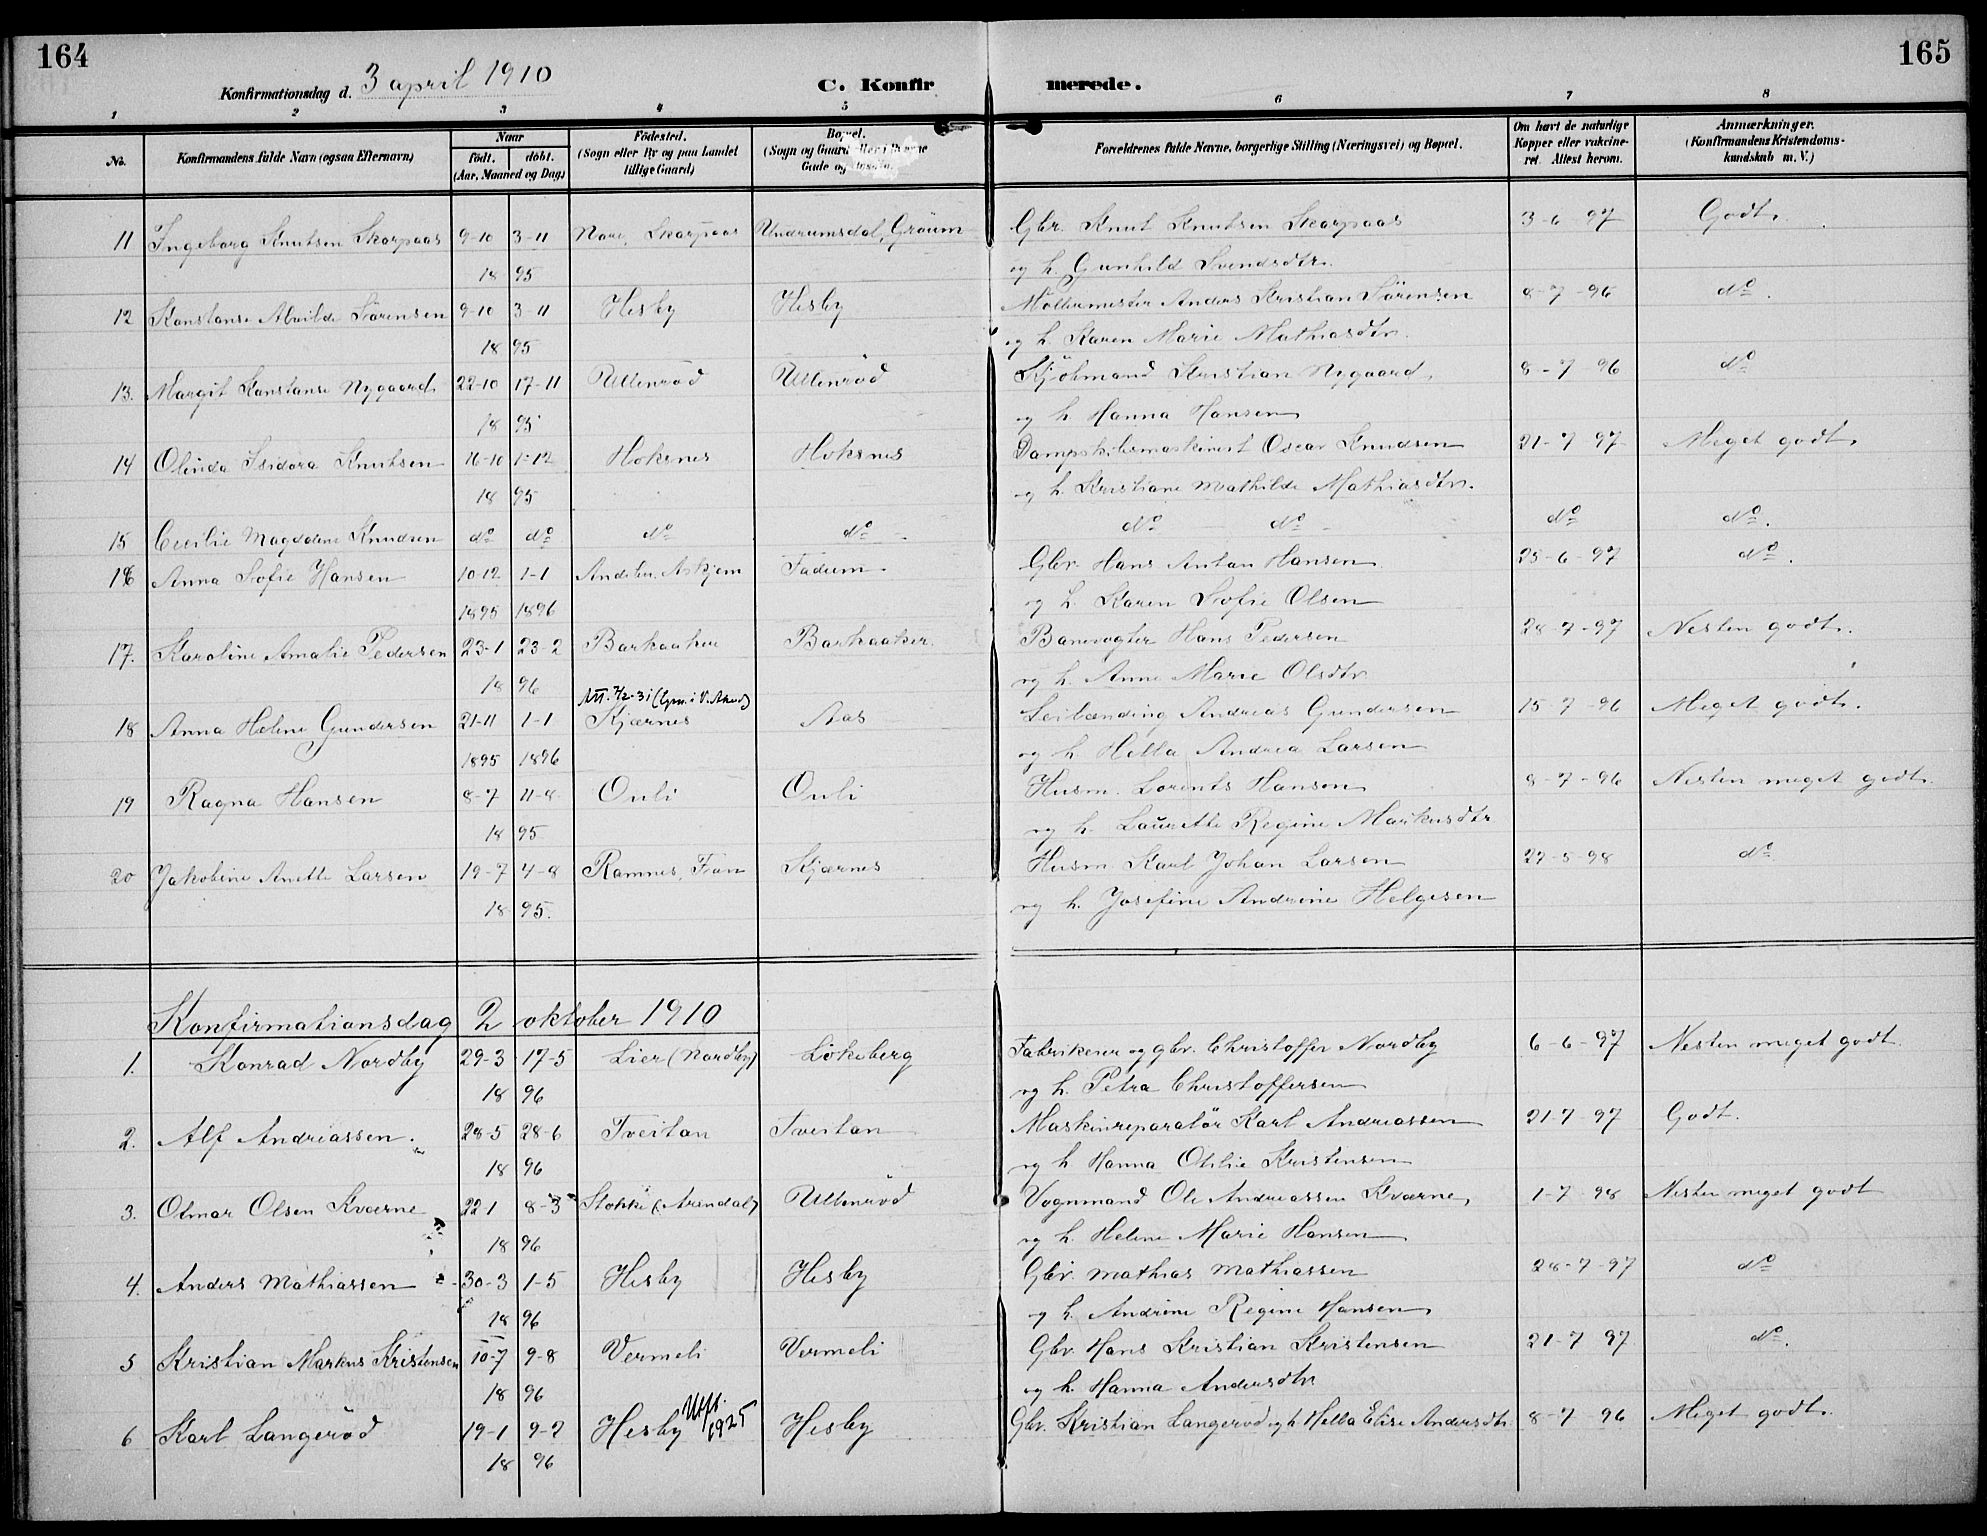 164
165
Konfirmationsdag d. 3 april 1910
C. Konfir
merede.
1 2 3 4 5 6 7 8
No.
Konfirmandens fulde Navn (ogsaa Efternavn)
Naar
født. døbt.
(Aar, Maaned og Dag)
Fødested.
(Sogn eller By og paa Landet
tillige Gaard)
Bopæl.
(Sogn og Gaard eller
Gade og
Forældrenes fulde Navne, borgerlige Stilling (Næringsvei) og Bopæl.
Om havt de naturlige
Kopper eller vakcine-
ret. Attest herom.
Anmærkninger.
(Konfirmandens Kristendoms-
kundskab m. V.)
11 Ingeborg Knutsen Skorpaas 9-10 3-11 Nore, Skorpaas Undrumsdal, Graum Gbr. Knut Knutsen Skorpaas 3-6-97 Godt.
18 95 og h. Gunhild Svendsdtr.
12 Konstanse Alvilde Sørensen 9-10 3-11 Hesby Hesby Møllemester Anders Kristian Sørensen 8-7-96 do.
18 95 og h. Karen Marie Mathiasdtr.
13. Margit Konstanse Nygaard 22-10 17-11 Ullenrød Ullenrød Kjøbmand Kristian Nygaard 8-7 96 do
18 95 og h. Hanna Hansen
14 Olinda Isidora Knutsen 16-10 1-12 Hoksnes Hoksnes Dampskibsmaskinist Oscar Knudsen 21-7-97 Meget godt.
18 95 og h. Kristiane Mathilde Mathiasdtr.
15 Cecilie Magdalene Knudsen do do do do do do do do.
16 Anna Sofie Hansen 10-12 1-1 Andebu, Askjem Fadum Gbr. Hans Anton Hansen 25-6-97 do.
1895 1896 og h. Karen Sofie Olsen
17. Karoline Amalie Pedersen 23-1 23-2 Barkaaker Barkaaker. Banevogter Hans Pedersen 28-7-97 Nesten godt.
18 96 og h. Anne Marie Olsdtr
Att. 7/2-31
18 Anna Helene Gundersen 21-11 1-1 Kjærnes Aas Leilænding Andreas Gundersen 15-7-96 Meget godt.
1895 1896 og h. Hella Andrea Larsen
19 Ragna Hansen 8-7 11-8 Onli Onli Husm. Lorents Hansen 8-7-96 Nesten meget godt.
18 95 og h. Laurette Regine Markusdtr
20 Jakobine Anette Larsen 19-7 4-8 Ramnes, Fon Kjærnes Husm Karl Johan Larsen 27-5-98 do
18 95. og h. Josefine Andrine Helgesen
Konfirmationsdag 2 oktober 1910
1. Konrad Nordby 29-3 17-5 Lier (Nordby) Løkeberg Fabrikeier og gbr. Christoffer Nordby 6-6-97 Nesten meget godt.
18 96 og h. Petra Christoffersen
2. Alf Andreassen. 28-5 28-6 Tveitan Tveitan Maskinreparatør Karl Andreassen 21-7-97 Godt.
18 96 og h Hanna Otilie Kristensen
3. Olmar Olsen Kværne 22-1 8-3 Stokke (Arendal) Ullenrød Vognmand Ole Andreassen Kværne, 1-7-98 Nesten meget godt
18 96 og h. Helene Marie Hansen
4. Anders Mathiassen 30-3 1-5 Hesby Hesby Gbr. Mathias Mathiassen 28-7-97 do
18 96 og h. Andrine Regine Hansen,
5 Kristian Markus Kristensen 10-7 9-8 Vermeli Vermeli Gbr. Hans Kristian Kristensen 21-7 97 do.
18 96 og h. Hanna Andersdtr
6 Karl Langerød 19-1 9-2 Hesby Utfl. 1925 Hesby Gbr. Kristian Langerød og h Hella Elise Andersdtr 8-7 96 Meget godt.
18 96